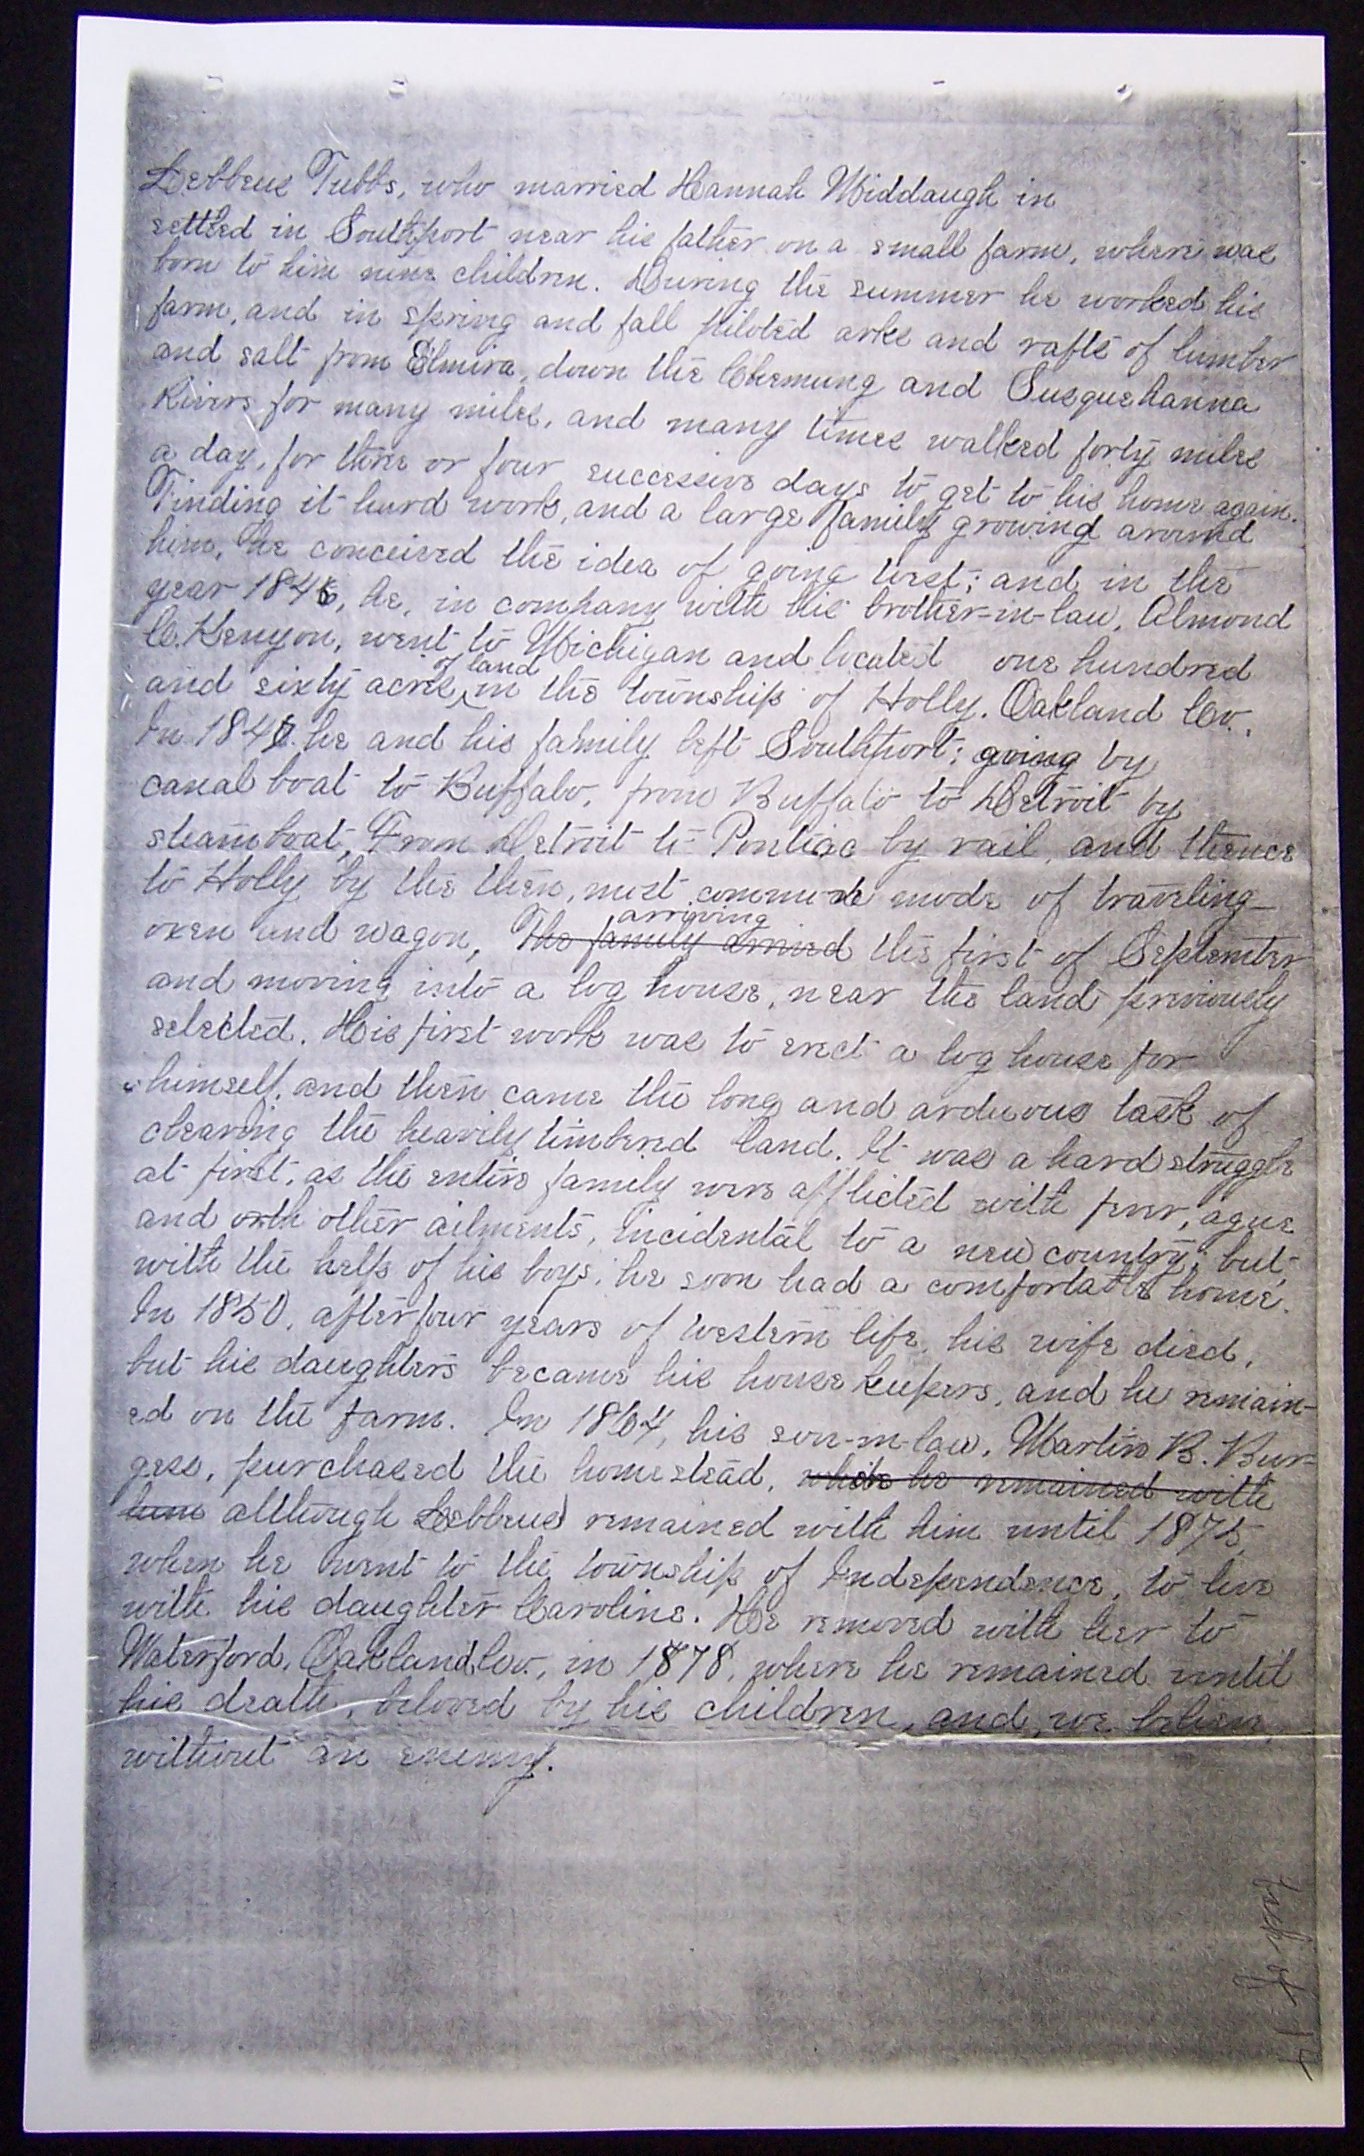 Lebbeus Tubbs, who married Hannah Middaugh in
settled in Southport near his father on a small farm, where was
born to him nine children. During the summer he worked his
farm, and in spring and fall piloted arks and rafts of lumber
and salt from Elmira, down the Chemung and Susquehanna
Rivers for many miles, and many times walked forty miles
a day, for three or four successive days to get to his home again.
Finding it hard work, and a large family growing around
him, he conceived the idea of going west; and in the
year 1845, he, in company with his brother-in-law, Almond
C. Kenyon, went to Michigan and located one hundred
and sixty acres of land in the township of Holly, Oakland Co.,
In 1846 he and his family left Southport; going by
canal boat to Buffalo, from Buffalo to Detroit by
steamboat, From Detroit to Pontiac by rail, and thence
to Holly by the then, most common mode of traveling-
oxen and wagon, The family arrived arriving the first of September
and moving into a log house, near the land previously
selected. His first work was to erect a log house for
himself, and then came the long and arduous task of
clearing the heavily timbered land. It was a hard struggle
at first, as the entire family were afflicted with fever, ague
and oth other ailments, incidental to a new country; but,
with the help of his boys, he soon had a comfortable home.
In 1850, after four years of western life, his wife died,
but his daughters became his house keepers, and he remain-
ed on the farm. In 1864, his son-in-law, Martin B. Bur-
gess, purchased the homestead, where he remained with
him although Lebbeus remained with him until 1875,
when he went to the township of Independence, to live
with his daughter Caroline. He removed with her to
Waterford, Oakland Co., in 1878, where he remained until
his death, beloved by his children, and, we believe,
without an enemy.